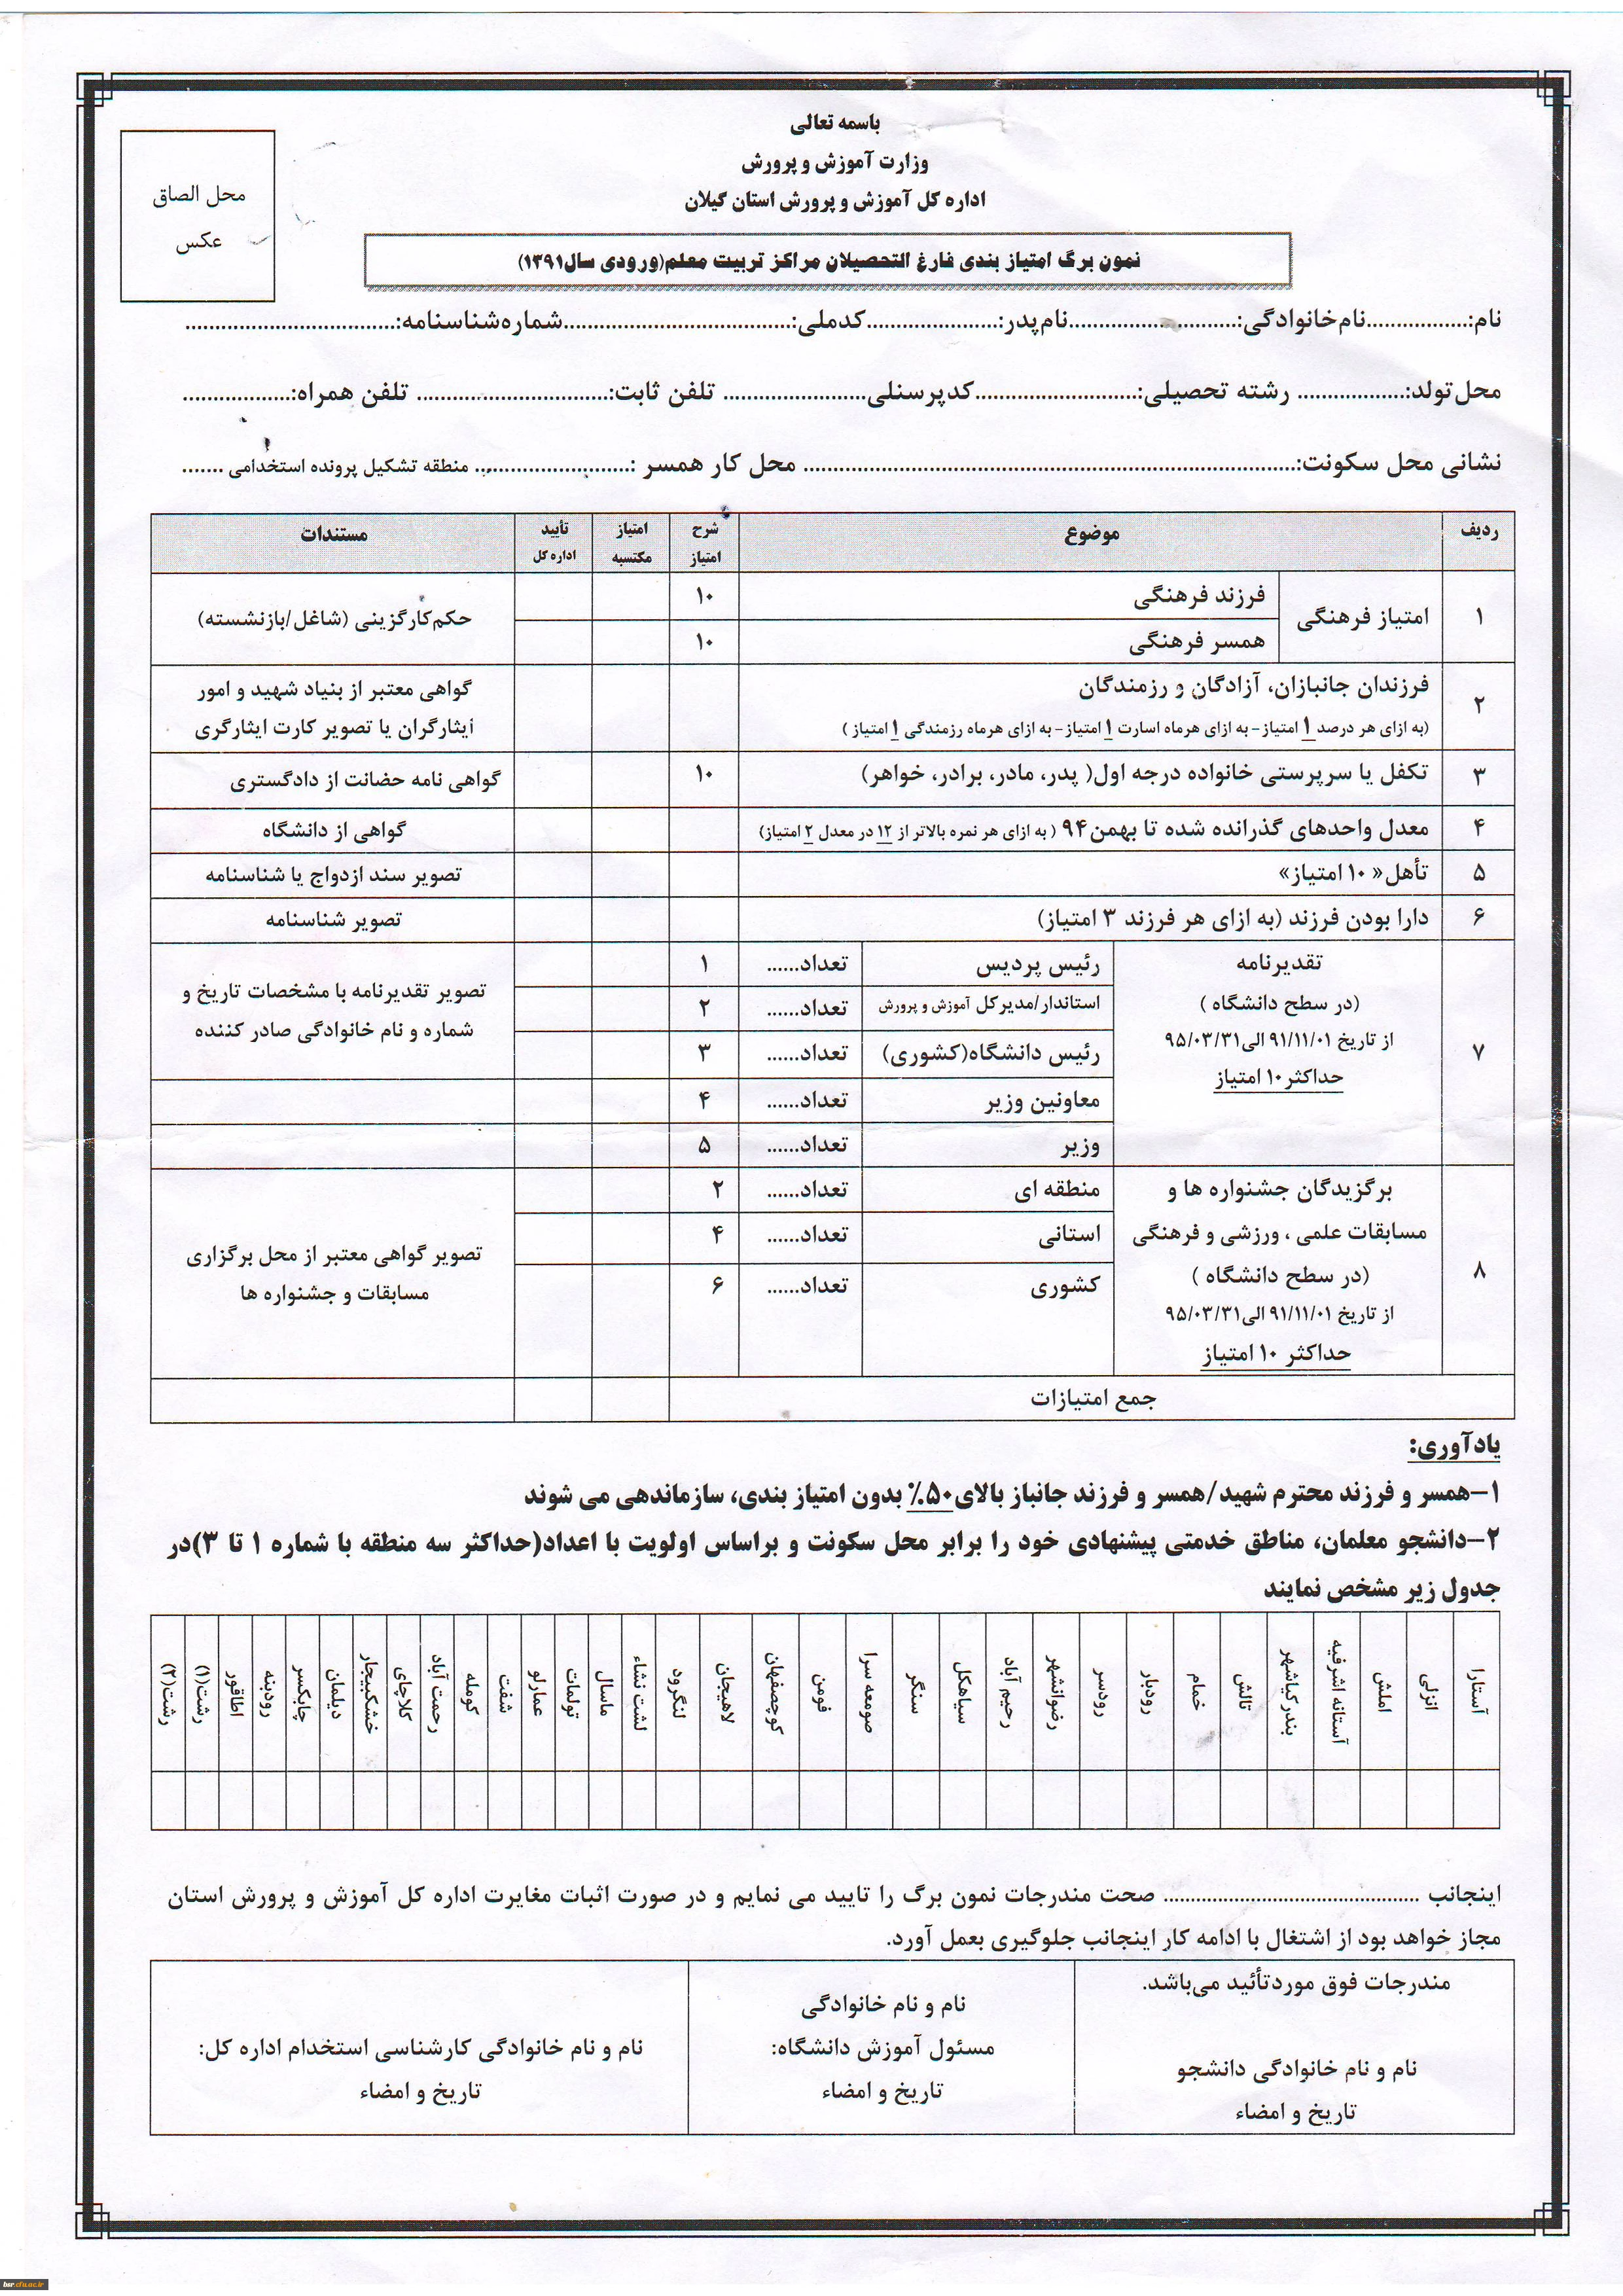 باسمه تعالی
وزارت آموزش و پرورش
اداره کل آموزش و پرورش استان گیلان
محل الصاق
عکس
نمون برگ امتیاز بندی فارغ التحصیلان مراکز تربیت معلم(ورودی سال۱۳۹۱)
نام:.................نام‌خانوادگی:............................نام‌پدر:......................کدملی:......................................شماره‌شناسنامه:...................................
محل‌تولد:.................. رشته تحصیلی:...........................کدپرسنلی........................ تلفن ثابت:................................ تلفن همراه:..................
نشانی محل سکونت:................................................................................... محل کار همسر :.......................... منطقه تشکیل پرونده استخدامی .......
ردیف موضوع شرح امتیاز امتیاز مکتسبه تأیید اداره کل مستندات
۱ امتیاز فرهنگی فرزند فرهنگی ۱۰ حکم‌کارگزینی (شاغل/بازنشسته)
همسر فرهنگی ۱۰
۲ فرزندان جانبازان، آزادگان و رزمندگان گواهی معتبر از بنیاد شهید و امور
(به ازای هر درصد ۱ امتیاز- به ازای هرماه اسارت ۱ امتیاز- به ازای هرماه رزمندگی ۱ امتیاز ) ایثارگران یا تصویر کارت ایثارگری
۳ تکفل یا سرپرستی خانواده درجه اول( پدر، مادر، برادر، خواهر) ۱۰ گواهی نامه حضانت از دادگستری
۴ معدل واحدهای گذرانده شده تا بهمن۹۴ ( به ازای هر نمره بالاتر از ۱۲ در معدل ۲ امتیاز) گواهی از دانشگاه
۵ تأهل« ۱۰ امتیاز» تصویر سند ازدواج یا شناسنامه
۶ دارا بودن فرزند (به ازای هر فرزند ۳ امتیاز) تصویر شناسنامه
۷ تقدیرنامه
(در سطح دانشگاه )
از تاریخ ۹۱/۱۱/۰۱ الی۹۵/۰۳/۳۱
حداکثر۱۰ امتیاز
رئیس پردیس تعداد...... ۱
استاندار/مدیرکل آموزش و پرورش تعداد...... ۲
رئیس دانشگاه(کشوری) تعداد...... ۳
معاونین وزیر تعداد...... ۴
وزیر تعداد...... ۵
تصویر تقدیرنامه با مشخصات تاریخ و
شماره و نام خانوادگی صادر کننده
۸ برگزیدگان جشنواره ها و
مسابقات علمی ، ورزشی و فرهنگی
(در سطح دانشگاه )
از تاریخ ۹۱/۱۱/۰۱ الی۹۵/۰۳/۳۱
حداکثر ۱۰ امتیاز
منطقه ای تعداد...... ۲
استانی تعداد...... ۴
کشوری تعداد...... ۶
تصویر گواهی معتبر از محل برگزاری
مسابقات و جشنواره ها
جمع امتیازات
یادآوری:
۱-همسر و فرزند محترم شهید/همسر و فرزند جانباز بالای۵۰٪ بدون امتیاز بندی، سازماندهی می شوند
۲-دانشجو معلمان، مناطق خدمتی پیشنهادی خود را برابر محل سکونت و براساس اولویت با اعداد(حداکثر سه منطقه با شماره ۱ تا ۳)در
جدول زیر مشخص نمایند
آستارا
انزلی
املش
آستانه اشرفیه
بندرکیاشهر
تالش
خمام
رودبار
رودسر
رضوانشهر
رحیم آباد
سیاهکل
سنگر
صومعه سرا
فومن
کوچصفهان
لاهیجان
لنگرود
لشت نشاء
ماسال
تولمات
عمارلو
شفت
کومله
رحمت آباد
کلاچای
خشکبیجار
دیلمان
چابکسر
رودبنه
اطاقور
رشت(۱)
رشت(۲)
اینجانب .......................................... صحت مندرجات نمون برگ را تایید می نمایم و در صورت اثبات مغایرت اداره کل آموزش و پرورش استان
مجاز خواهد بود از اشتغال با ادامه کار اینجانب جلوگیری بعمل آورد.
مندرجات فوق موردتأئید می‌باشد.
نام و نام خانوادگی دانشجو
تاریخ و امضاء
نام و نام خانوادگی
مسئول آموزش دانشگاه:
تاریخ و امضاء
نام و نام خانوادگی کارشناسی استخدام اداره کل:
تاریخ و امضاء
bsr.cfu.ac.ir